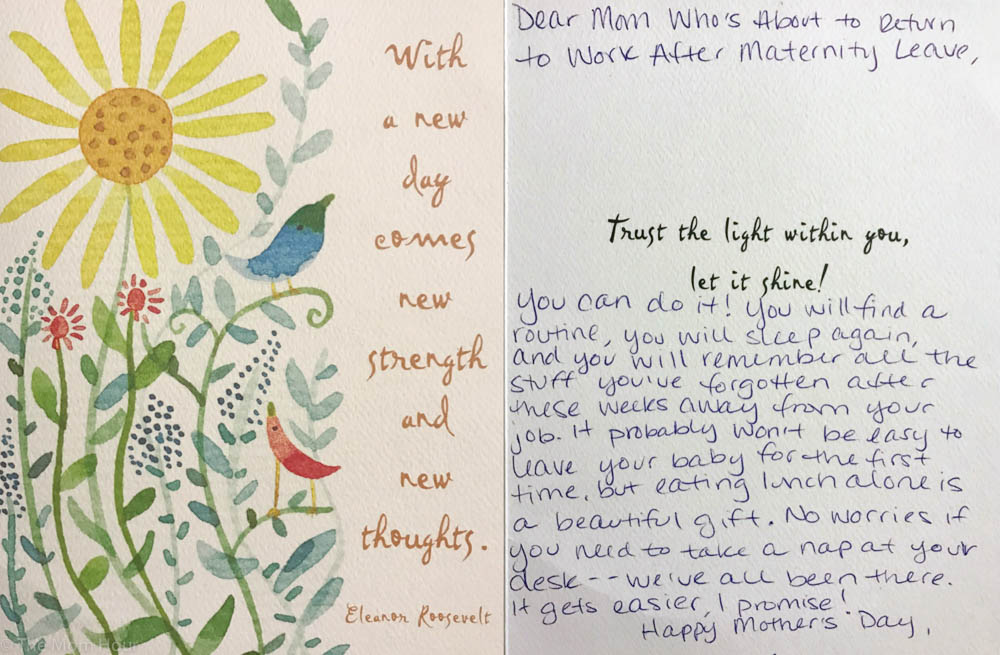 With
a new
day
comes
new
strength
and
new
thoughts.
Eleanor Roosevelt
© The Mom Hour
Dear Mom Who's About to Return
to Work After Maternity Leave,
Trust the light within you,
let it shine!
You can do it! You will find a
routine, you will sleep again,
and you will remember all the
stuff you've forgotten after
these weeks away from your
job. It probably won't be easy to
leave your baby for the first
time, but eating lunch alone is
a beautiful gift. No worries if
you need to take a nap at your
desk -- we've all been there.
It gets easier, I promise!
Happy Mother's Day,